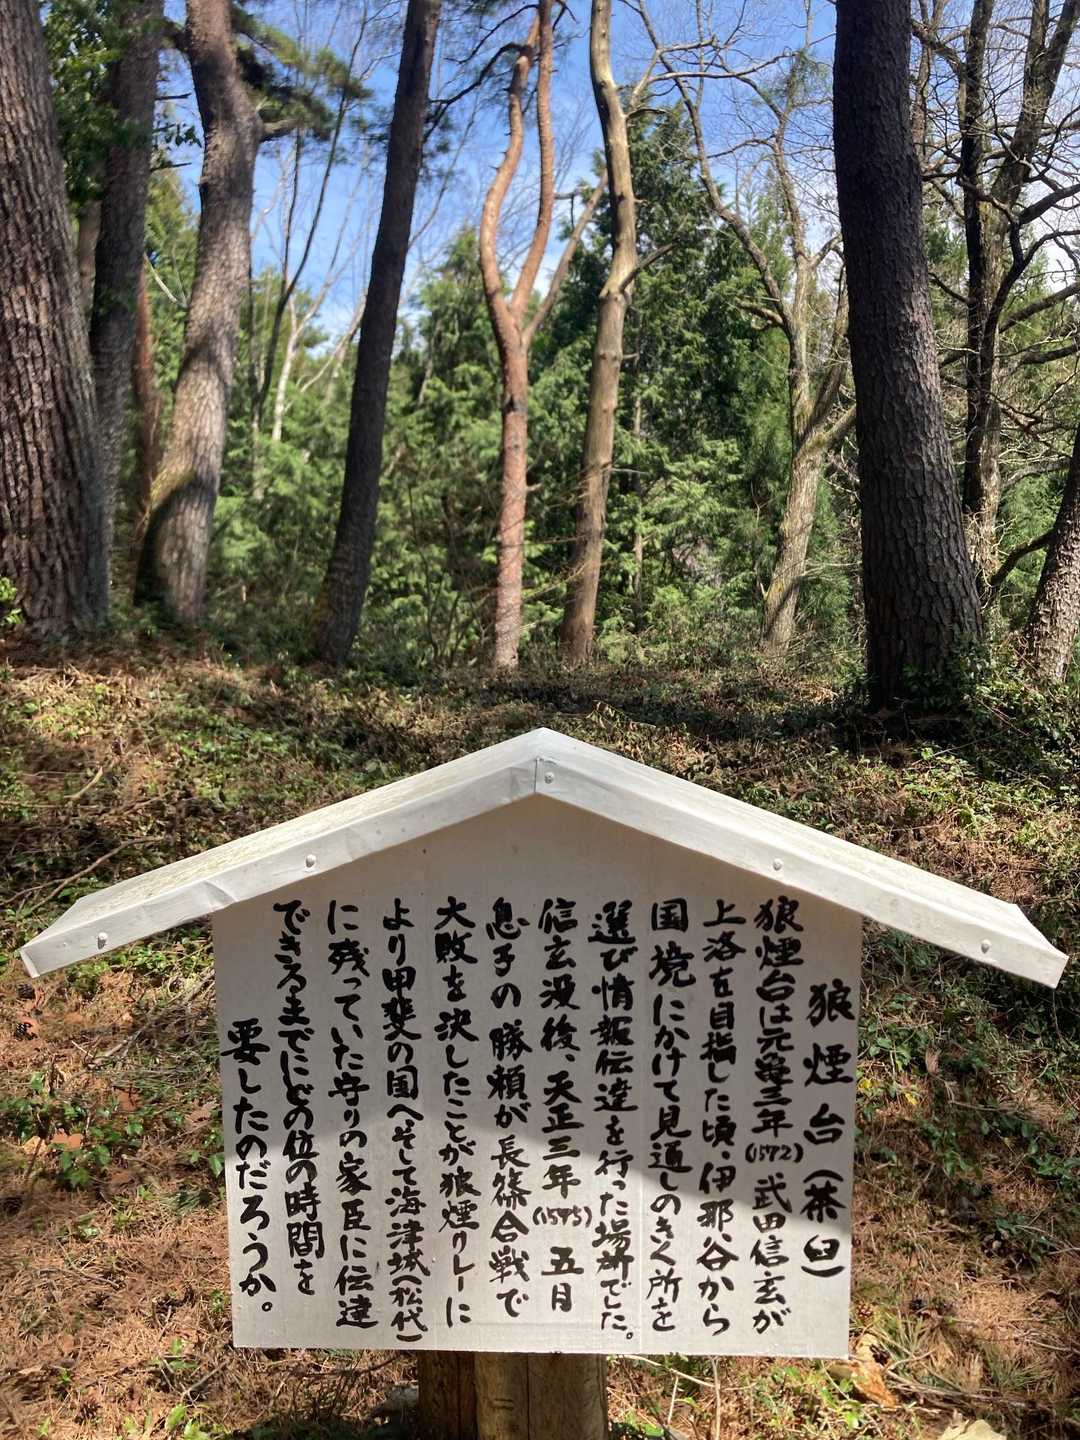 狼煙台(茶臼)
狼煙台は元亀三年(1572)武田信玄が
上洛を目指した頃、伊那谷から
国境にかけて見通しのきく所を
選び情報伝達を行った場所でした。
信玄没後、天正三年(1575)五月
息子の勝頼が長篠合戦で
大敗を決したことが狼煙リレーに
より甲斐の国へそして海津城(松代)
に残っていた守りの家臣に伝達
できるまでにどの位の時間を
要したのだろうか。